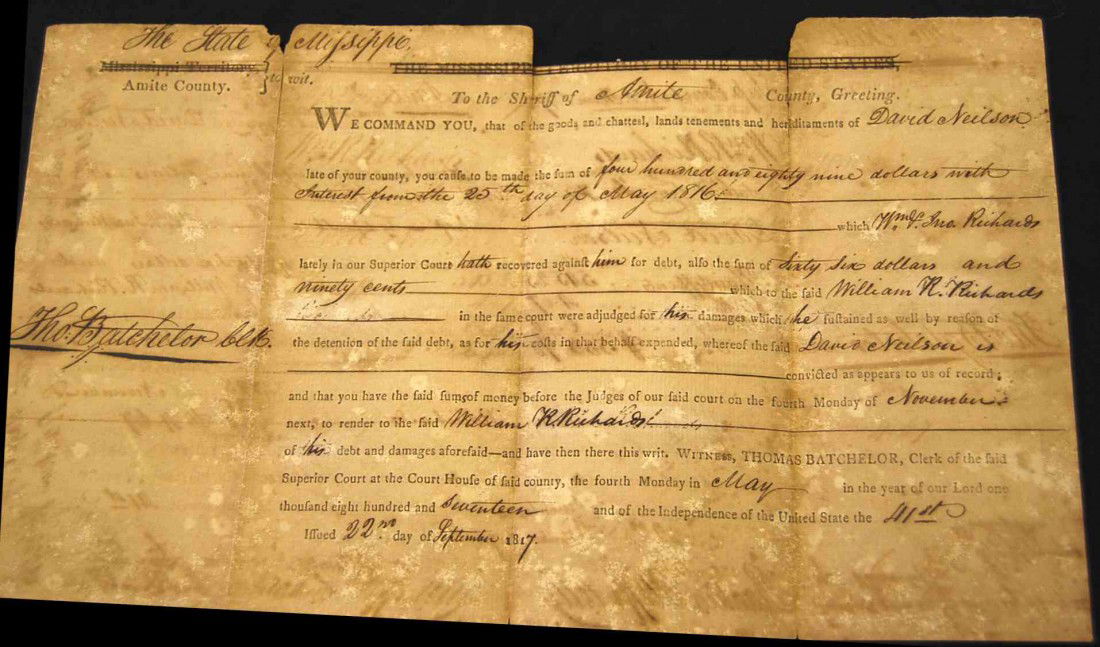 The State of Missippi,
Mississippi Territory, } to wit.
Amite County.
THE MISSISSIPPI TERRITORY OF THE UNITED STATES,
To the Sheriff of Amite County, Greeting.
WE COMMAND YOU, that of the goods and chattesl, lands tenements and herditaments of David Neilson
late of your county, you cause to be made the sum of four hundred and eighty nine dollars with
Interest from the 25th day of May 1816.
which Wm. & Jno. Richards
lately in our Superior Court hath recovered against him for debt, also the sum of Sixty six dollars and
ninety cents which to the said William R. Richards
in the same court were adjudged for his damages which he sustained as well by reason of
the detention of the said debt, as for his costs in that behalf expended, whereof the said David Neilson is
Tho. Batchelor Clk.
convicted as appears to us of record;
and that you have the said sums of money before the Judges of our said court on the fourth Monday of November
next, to render to the said William R. Richards
of his debt and damages aforesaid—and have then there this writ. WITNESS, THOMAS BATCHELOR, Clerk of the said
Superior Court at the Court House of said county, the fourth Monday in May in the year of our Lord one
thousand eight hundred and Seventeen and of the Independence of the United State the 41st
Issued 22nd day of September 1817.